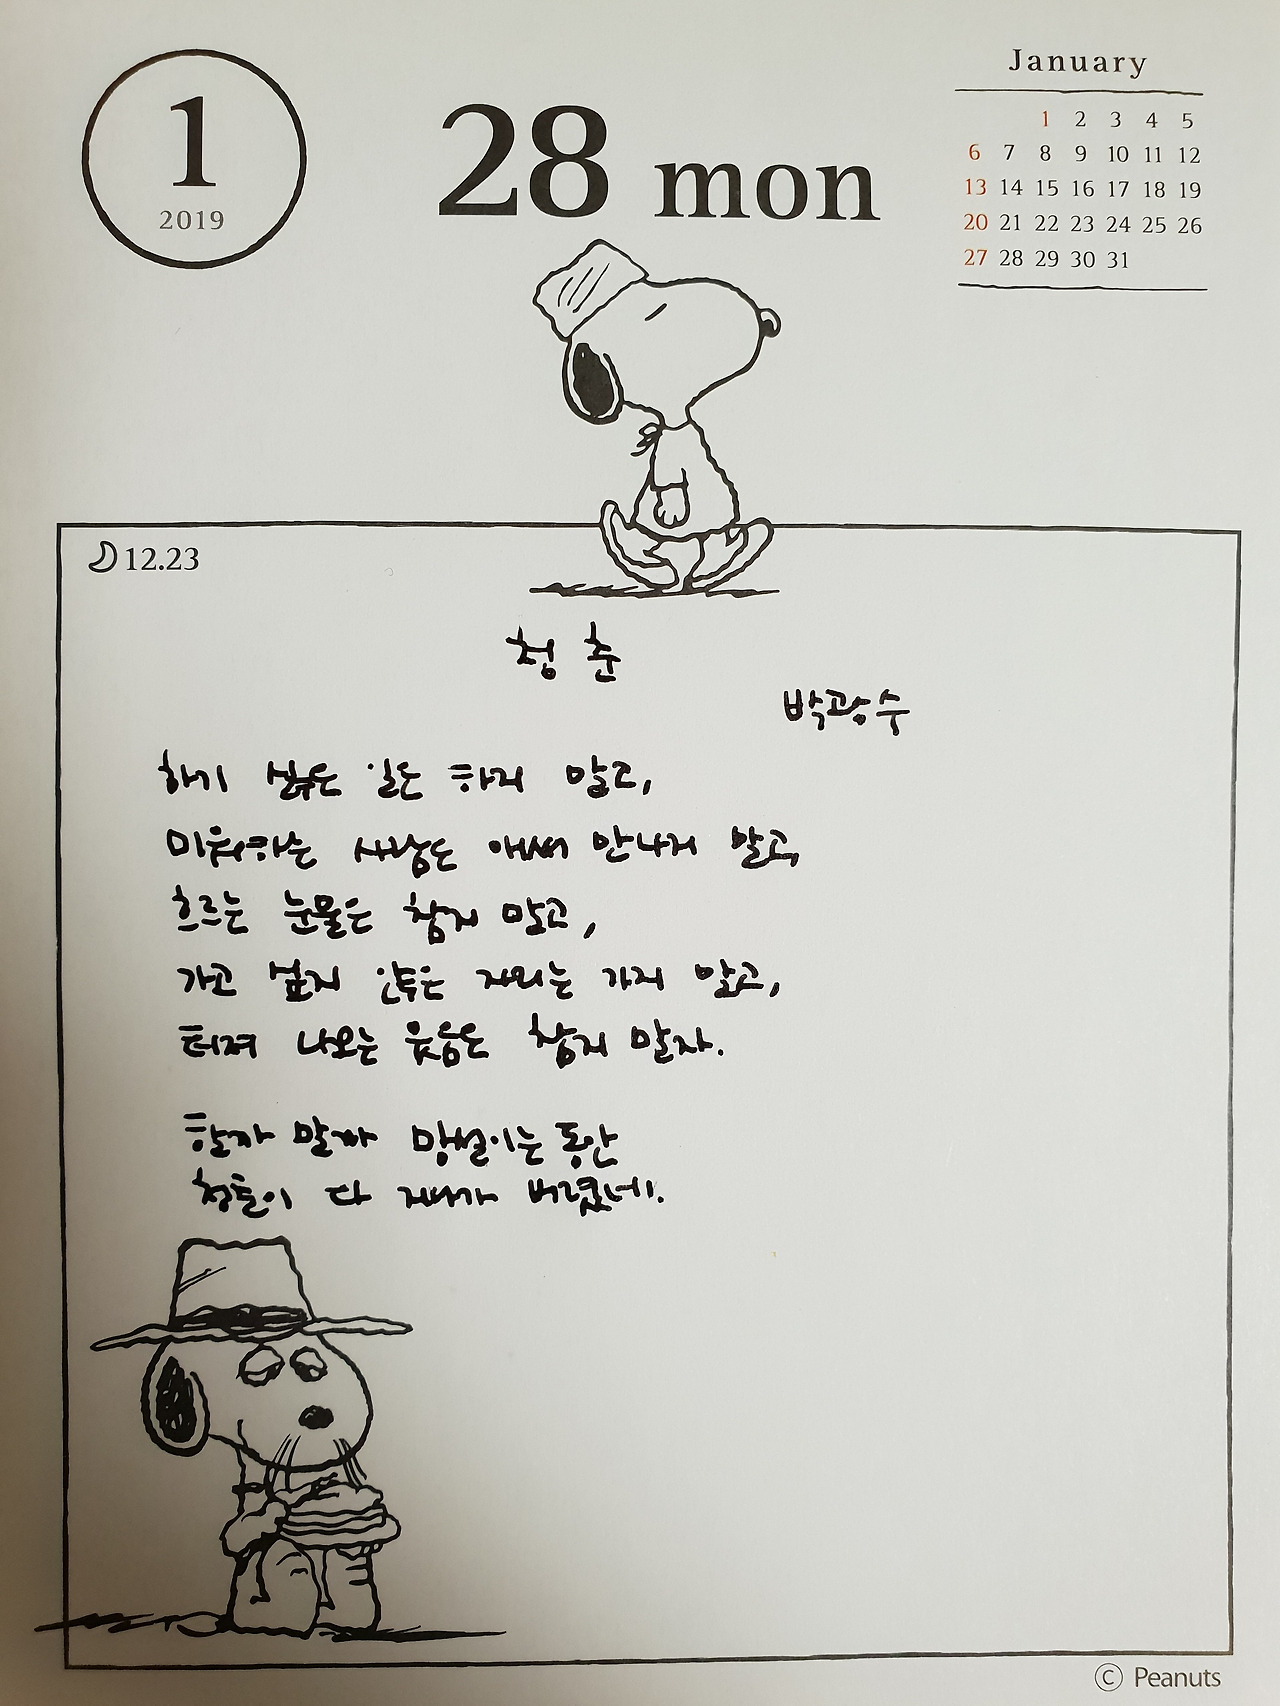 1
2019
28 mon
January
1 2 3 4 5
6 7 8 9 10 11 12
13 14 15 16 17 18 19
20 21 22 23 24 25 26
27 28 29 30 31
12.23
청 춘
박광수
하기 싫은 일은 하지 말고,
미워하는 사람은 애써 만나지 말고,
흐르는 눈물은 참지 말고,
가고 싶지 않은 자리는 가지 말고,
터져 나오는 웃음은 참지 말자.
할까 말까 망설이는 동안
청춘이 다 지나가 버렸네.
© Peanuts